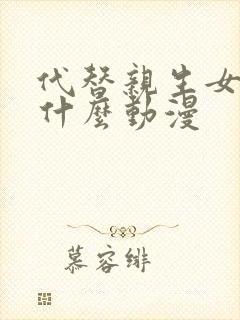 代替親生女
什麼動漫
慕容緋